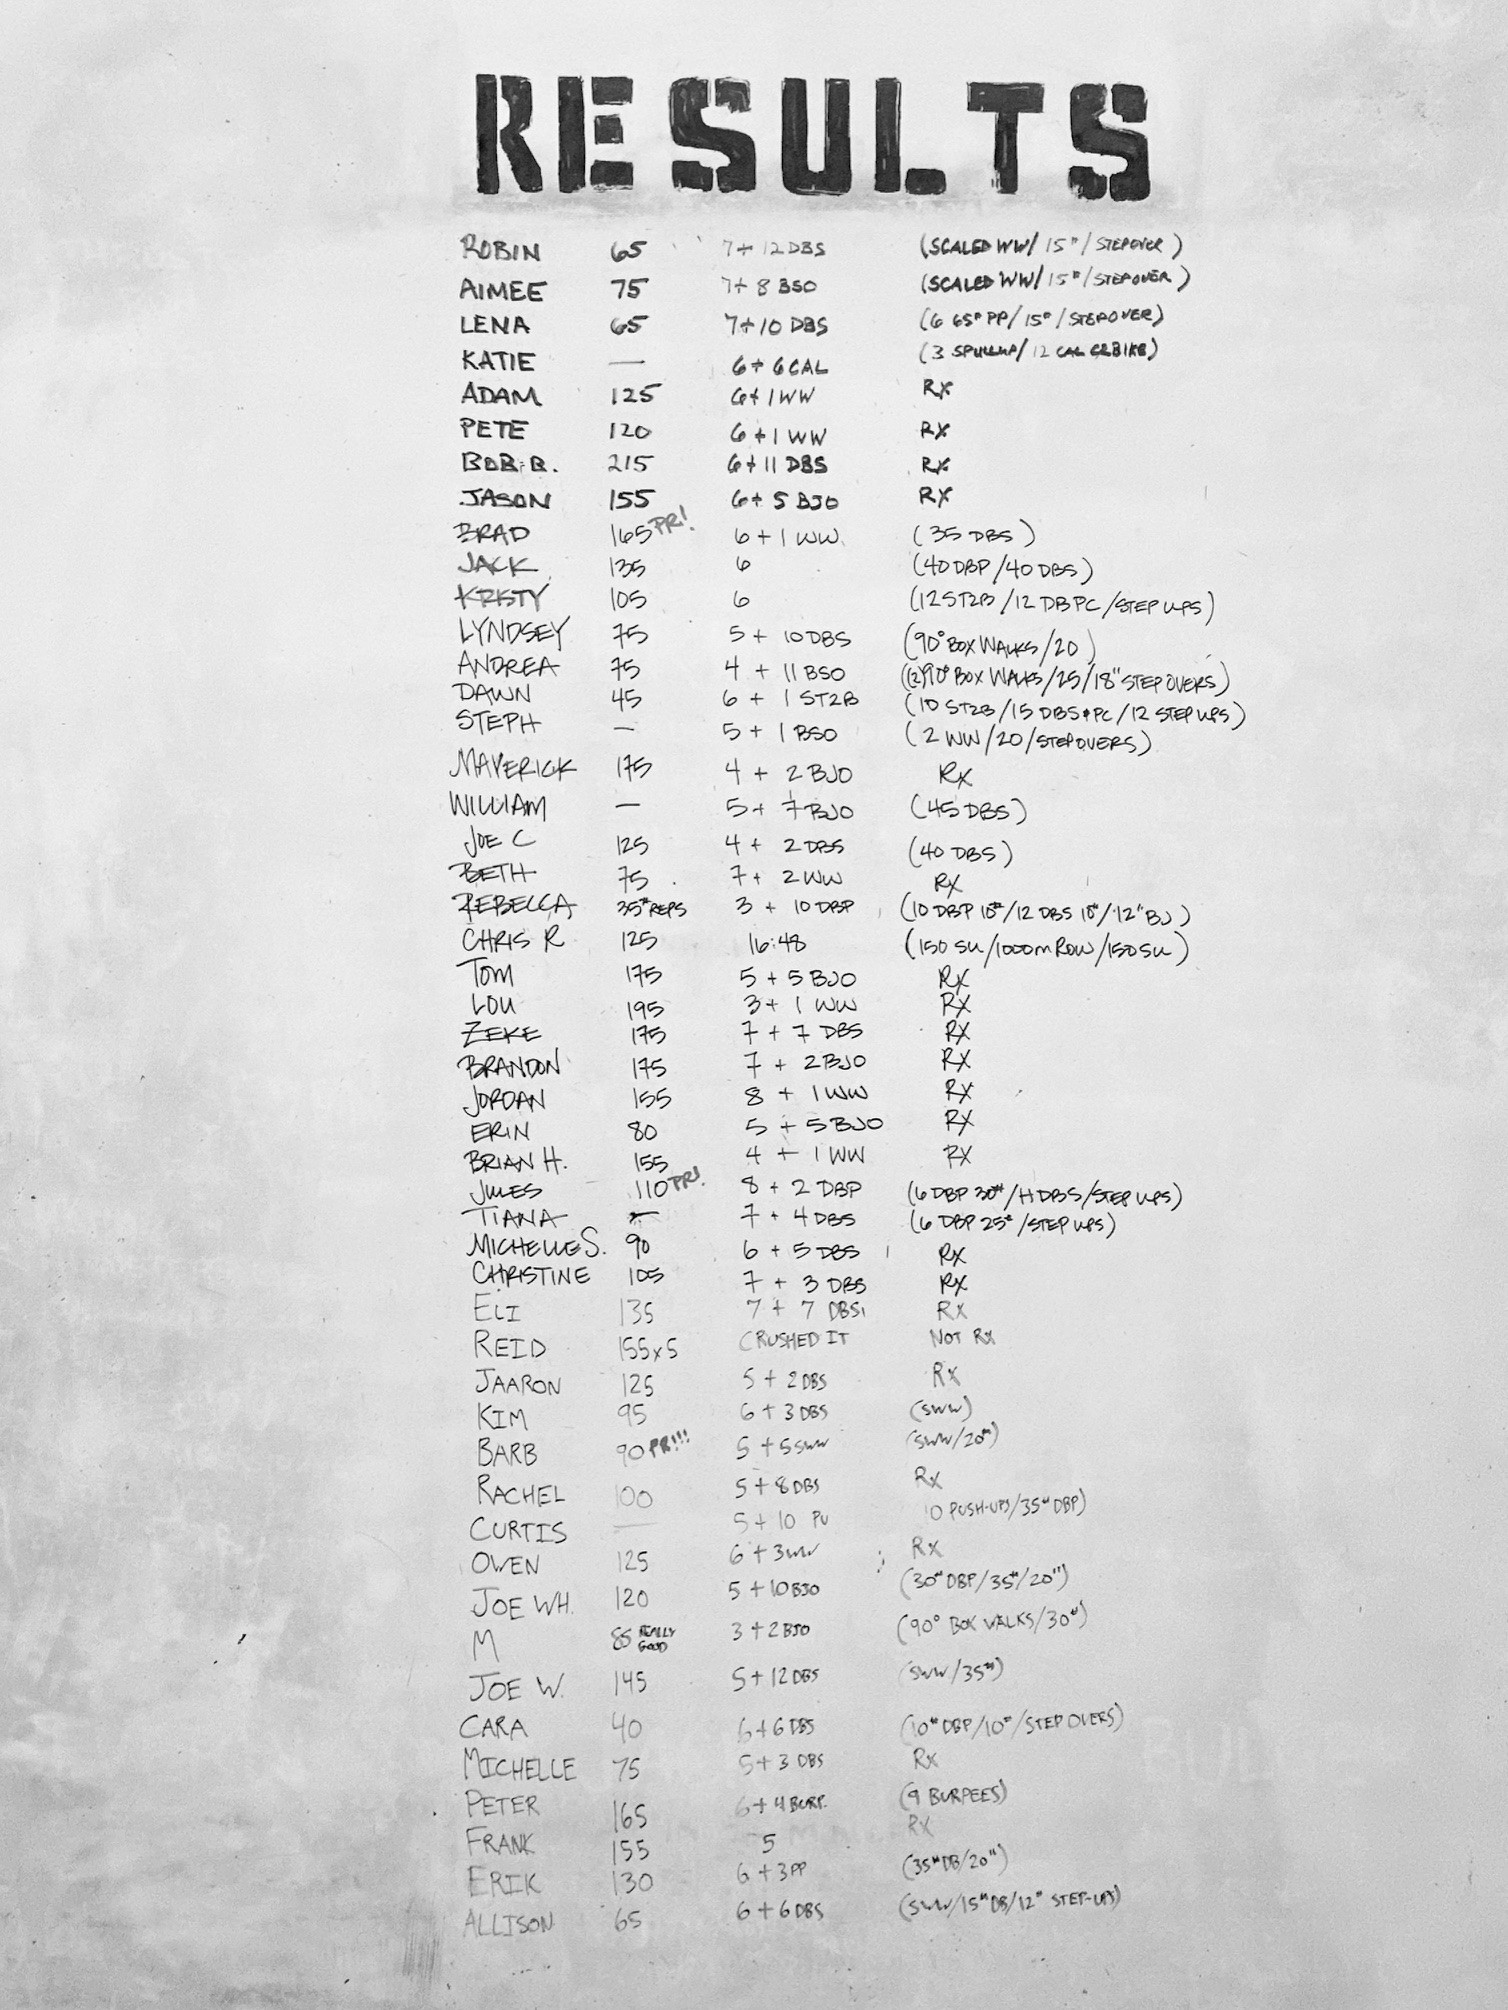 RESULTS
ROBIN 65 7+12 DBS (SCALED WW/15"/STEPOVER)
AIMEE 75 7+8 BSO (SCALED WW/15"/STEPOVER)
LENA 65 7+10 DBS (6 65# PP/15#/STEPOVER)
KATIE — 6+6 CAL (3 SPULLUP/12 CAL C2BIKE)
ADAM 125 6+1 WW RX
PETE 120 6+1 WW RX
BOB B. 215 6+11 DBS RX
JASON 155 6+5 BJO RX
BRAD 165 PR! 6+1 WW (35 DBS)
JACK 135 6 (40 DBP/40 DBS)
KRISTY 105 6 (12 ST2B/12 DBPC/STEP UPS)
LYNDSEY 75 5+10 DBS (90° BOX WALKS/20)
ANDREA 75 4+11 BSO ((2)90° BOX WALKS/25/18" STEP OVERS)
DAWN 45 6+1 ST2B (10 ST2B/15 DBS+PC/12 STEP UPS)
STEPH — 5+1 BSO (2 WW/20/STEPOVERS)
MAVERICK 175 4+2 BJO RX
WILLIAM — 5+7 BJO (45 DBS)
JOE C 125 4+2 DBS (40 DBS)
BETH 75 7+2 WW RX
REBECCA 35# REPS 3+10 DBP (10 DBP 10#/12 DBS 10#/12" BJ)
CHRIS R 125 16:48 (150 SU/1000m ROW/150 SU)
TOM 175 5+5 BJO RX
LOU 195 3+1 WW RX
ZEKE 175 7+7 DBS RX
BRANDON 175 7+2 BJO RX
JORDAN 155 8+1 WW RX
ERIN 80 5+5 BJO RX
BRIAN H. 155 4+1 WW RX
JULES 110 PR! 8+2 DBP (6 DBP 30#/H DBS/STEP UPS)
TIANA — 7+4 DBS (6 DBP 25#/STEP UPS)
MICHELLE S. 90 6+5 DBS RX
CHRISTINE 105 7+3 DBS RX
ELI 135 7+7 DBS RX
REID 155x5 CRUSHED IT NOT RX
JAARON 125 5+2 DBS RX
KIM 95 6+3 DBS (SWW)
BARB 90 PR!!! 5+5 SWW (SWW/20#)
RACHEL 100 5+8 DBS RX
CURTIS — 5+10 PU 10 PUSH-UPS/35# DBP)
OWEN 125 6+3 WW RX
JOE WH. 120 5+10 BJO (30# DBP/35#/20")
M 85 REALLY GOOD 3+2 BJO (90° BOX WALKS/30#)
JOE W. 145 5+12 DBS (SWW/35#)
CARA 40 6+6 DBS (10# DBP/10#/STEP OVERS)
MICHELLE 75 5+3 DBS RX
PETER 165 6+4 BURP. (9 BURPEES)
FRANK 155 5 RX
ERIK 130 6+3 PP (35# DB/20")
ALLISON 65 6+6 DBS (SWW/15# DB/12" STEP-UPS)